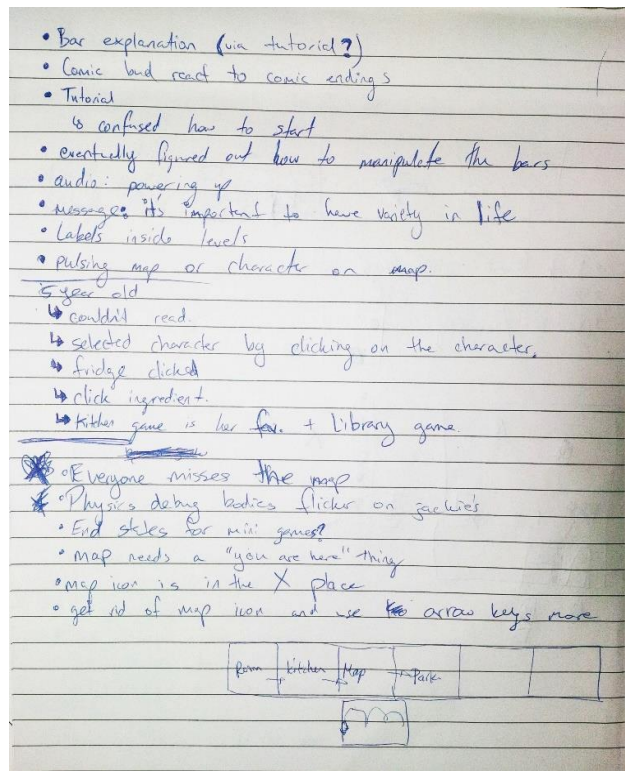 • Bar explanation (via tutorial?)
• Comic bud react to comic endings
• Tutorial
↳ confused how to start
• eventually figured out how to manipulate the bars
• audio: powering up
• message: it's important to have variety in life
• Labels inside levels
• pulsing map or character on map.
5 year old
↳ couldn't read.
↳ selected character by clicking on the character.
↳ fridge clicked
↳ click ingredient.
↳ Kitchen game is her fav. + Library game.
• Everyone misses the map
• Physics debug bodies flicker on jackie's
• End states for mini games?
• map needs a "you are here" thing
• map icon is in the X place
• get rid of map icon and use arrow keys more
Room → Kitchen → Map → Park